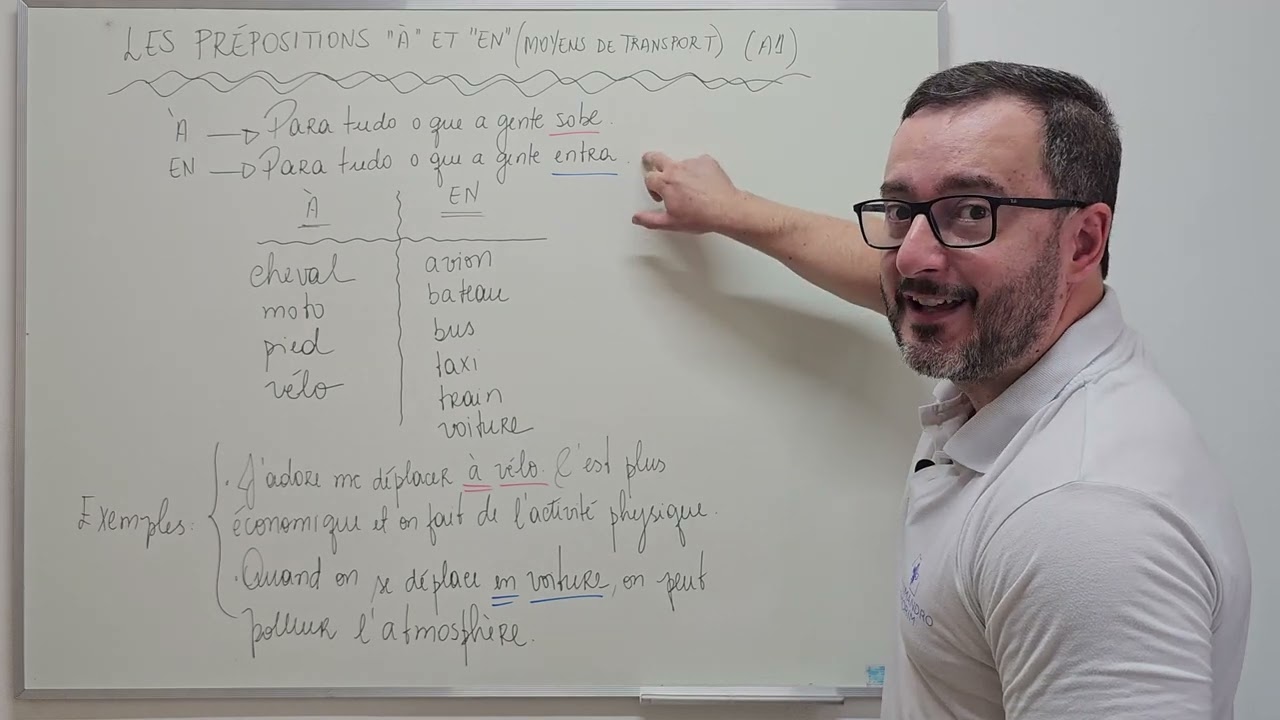 LES PRÉPOSITIONS "À" ET "EN" (MOYENS DE TRANSPORT) (A1)
À → Para tudo o que a gente sobe.
EN → Para tudo o que a gente entra.
À EN
cheval avion
moto bateau
pied bus
vélo taxi
train
voiture
Exemples:
. J'adore me déplacer à vélo. C'est plus
économique et on fait de l'activité physique.
. Quand on se déplace en voiture, on peut
polluer l'atmosphère.